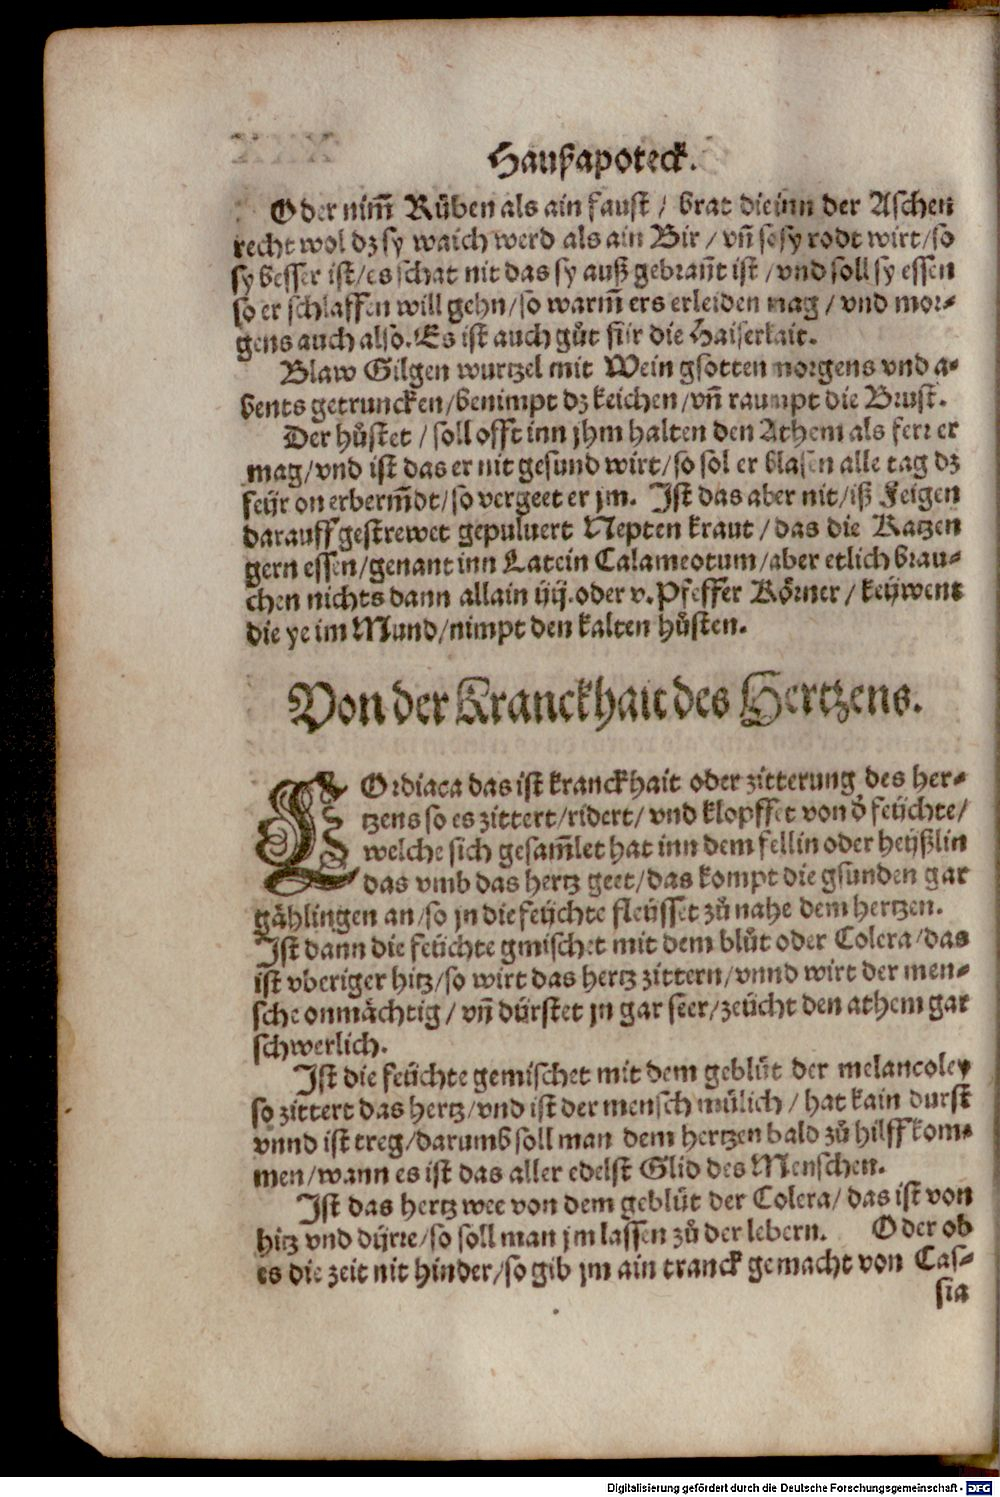 Haußapoteck.
Oder nim̃ Rüben als ain faust / brat die inn der Aschen
recht wol dz sy waich werd als ain Bir / vñ so sy rodt wirt / so
sy besser ist / es schat nit das sy auß gebrañt ist / vnd soll sy essen
so er schlaffen will gehn / so warm̃ ers erleiden mag / vnd mor-
gens auch also. Es ist auch gůt für die Haiserkait.
Blaw Gilgen wurtzel mit Wein gsotten morgens vnd a-
bents getruncken / benimpt dz keichen / vñ raumpt die Brust.
Der hůstet / soll offt inn jhm halten den Athem als ferr er
mag / vnd ist das er nit gesund wirt / so sol er blasen alle tag dz
feür on erberm̃dt / so vergeet er jm. Ist das aber nit / iß Feigen
darauff gestrewet gepuluert Nepten kraut / das die Katzen
gern essen / genant inn Latein Calameotum / aber etlich brau-
chen nichts dann allain iiij. oder v. Pfeffer Körner / keüwent
die ye im Mund / nimpt den kalten hůsten.
Von der Kranckhait des Hertzens.
COrdiaca das ist kranckhait oder zitterung des her-
tzens so es zittert / ridert / vnd klopffet von d̓ feüchte /
welche sich gesam̃let hat inn dem fellin oder heüßlin
das vmb das hertz geet / das kompt die gsunden gar
gählingen an / so jn die feüchte fleüsset zů nahe dem hertzen.
Ist dann die feüchte gmischet mit dem blůt oder Colera / das
ist vberiger hitz / so wirt das hertz zittern / vnnd wirt der men-
sche onmächtig / vñ dürstet jn gar seer / zeücht den athem gar
schwerlich.
Ist die feüchte gemischet mit dem geblüt der melancoley
so zittert das hertz / vnd ist der mensch mülich / hat kain durst
vnnd ist treg / darumb soll man dem hertzen bald zů hilff kom-
men / wann es ist das aller edelst Glid des Menschen.
Ist das hertz wee von dem geblüt der Colera / das ist von
hitz vnd dürre / so soll man jm lassen zů der lebern. Oder ob
es die zeit nit hinder / so gib jm ain tranck gemacht von Cas-
sia
Digitalisierung gefördert durch die Deutsche Forschungsgemeinschaft - DFG